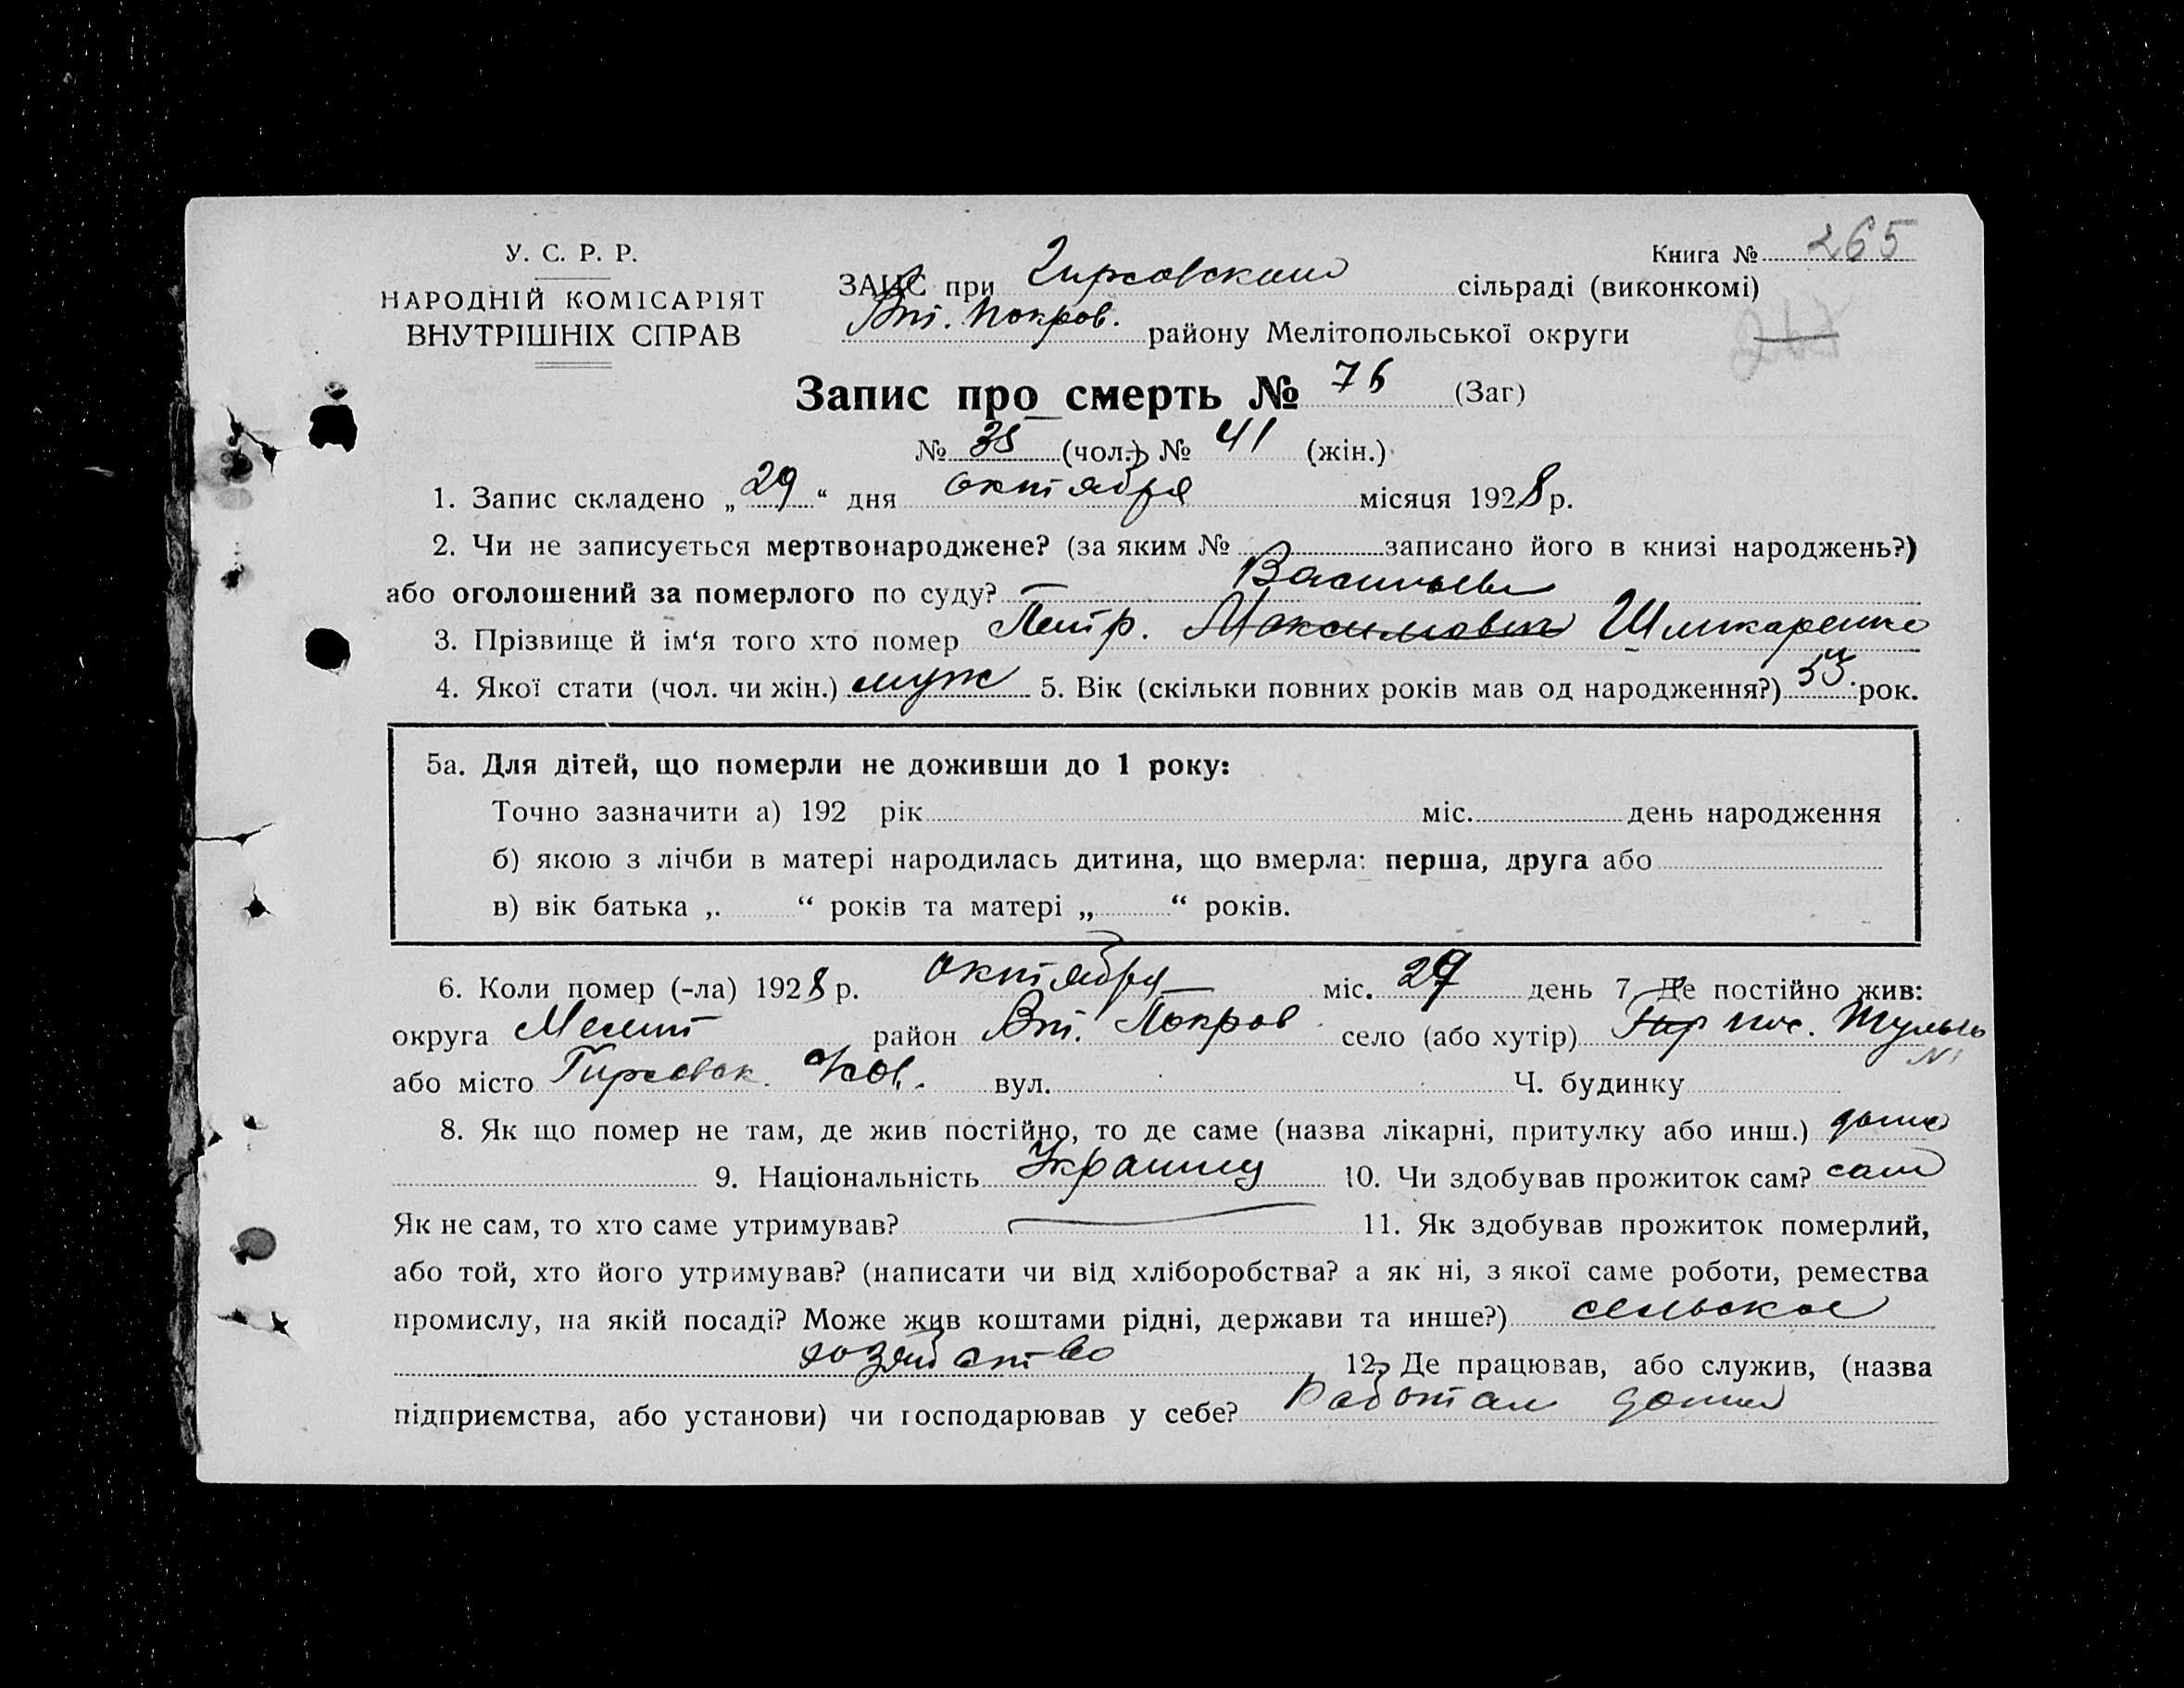 У. С. Р. Р.
НАРОДНІЙ КОМІСАРІЯТ
ВНУТРІШНІХ СПРАВ
Книга № 265
ЗАГС при Гирсовском сільраді (виконкомі)
Вт. Покров. району Мелітопольської округи
Запис про смерть № 76 (Заг)
№ 35 (чол.) № 41 (жін.)
1. Запис складено „ 29 “ дня октября місяця 1928 р.
2. Чи не записується мертвонароджене? (за яким № записано його в книзі народжень?)
або оголошений за померлого по суду? —
Васильев
3. Прізвище й ім‘я того хто помер Петр. Максимович
4. Якої стати (чол. чи жін.) муж 5. Вік (скільки повних років мав од народження?) рок.
5а. Для дітей, що померли не доживши до 1 року:
Точно зазначити а) 192 рік міс. день народження
б) якою з лічби в матері народилась дитина, що вмерла: перша, друга або
в) вік батька „ “ років та матері „ “ років.
6. Коли помер (-ла) 1928 р. октября міс. день 7. Де постійно жив:
округа Мелит район Вт. Покров село (або хутір) пос.
або місто Гирсовск. вул. Ч. будинку
8. Як що помер не там, де жив постійно, то де саме (назва лікарні, притулку або инш.) дома
9. Національність Украинец 10. Чи здобував прожиток сам? сам
Як не сам, то хто саме утримував? —
11. Як здобував прожиток померлий,
або той, хто його утримував? (написати чи від хліборобства? а як ні, з якої саме роботи, ремества
промислу, на якій посаді? Може жив коштами рідні, держави та инше?) сельское
хозяйство 12. Де працював, або служив, (назва
підприємства, або установи) чи господарював у себе? Работал дома